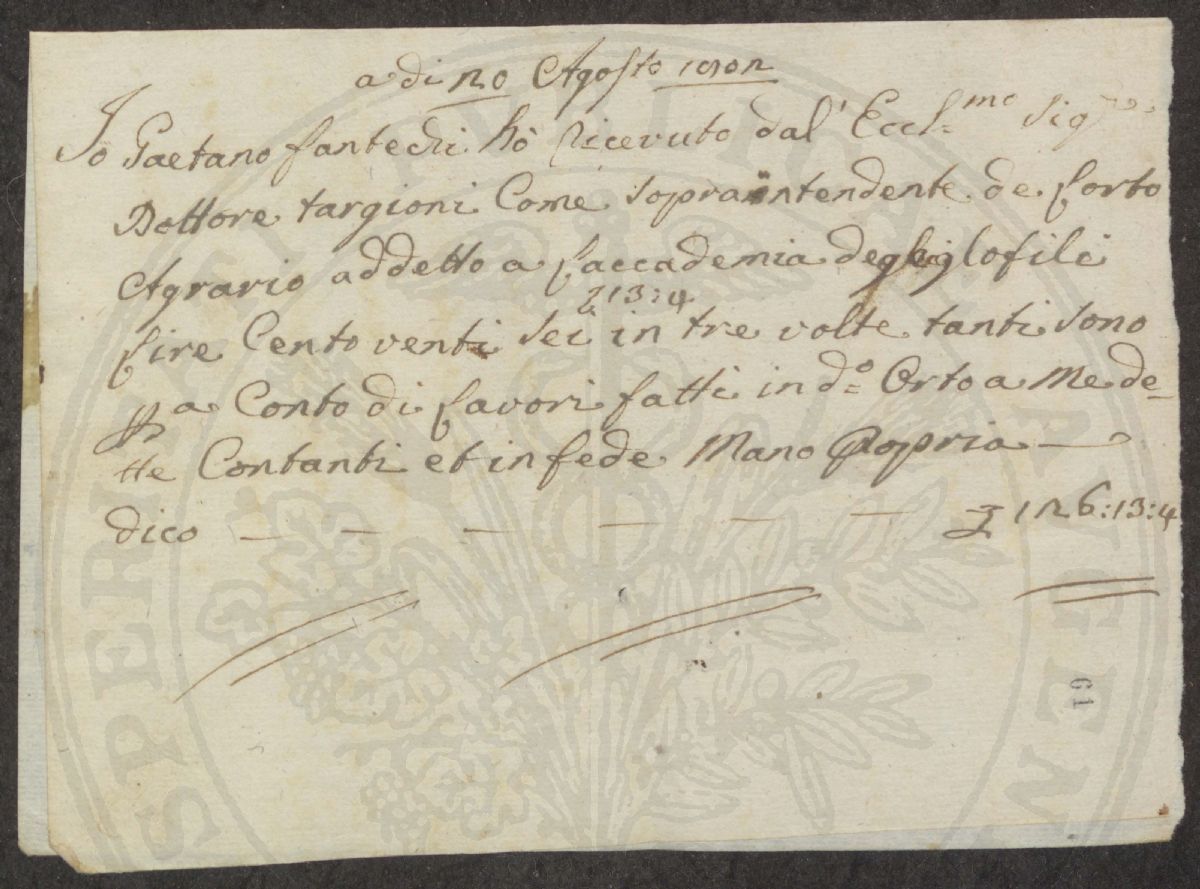 a di 20 Agosto 1802
Io Gaetano fantechi hò Ricevuto dal' Eccl:mo Sig.re
Dottore targioni Come Sopraintendente de lorto
Agrario addetto a laccademia degli
£ 13:4
lire Cento venti Sei in tre volte tanti Sono
p a Conto di lavori fatti in d:o Orto a Me de=
tte Contanti et in fede Mano Propria —
dico — — — — — — £ 126:13:4
61
SPERITATI PVBLICAE AVGEN